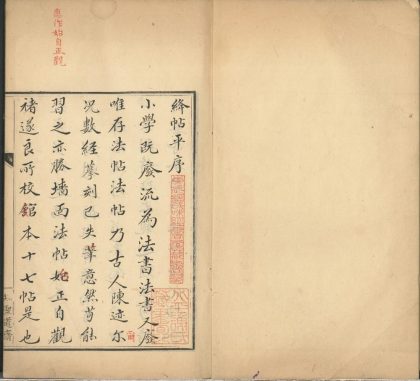 應作始自正觀
絳帖平序
小學既廢流為法書法書又廢
唯存法帖法帖乃古人陳迹尔
况數經摹刻已失筆意然苟能
習之亦勝墻面法帖始正自觀
褚遂良所校館本十七帖是也